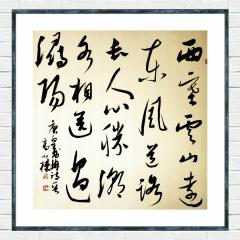 西塞雲山遠
東風道路
長人心勝潮
水相送過
潯陽